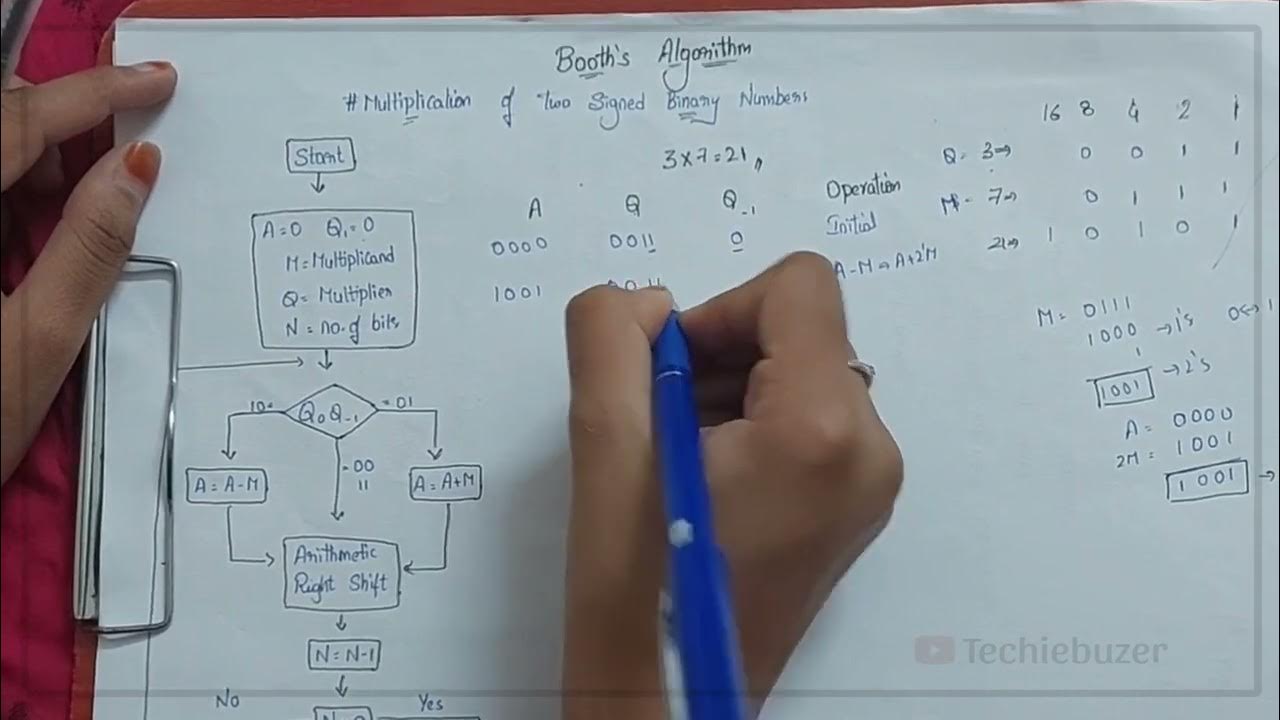 Booth's Algorithm
# Multiplication of Two Signed Binary Numbers
3 x 7 = 21
Start
A=0 Q₋₁=0
M= Multiplicand
Q= Multiplier
N = no. of bits
Q₀Q₋₁
10=
= 01
= 00
11
A = A-M
A = A+M
Arithmetic
Right Shift
N = N-1
No
Yes
A Q Q₋₁ Operation
0000 0011 0 Initial
1001 0011 A-M ⇒ A+2'M
16 8 4 2 1
Q= 3⇒ 0 0 1 1
M= 7⇒ 0 1 1 1
21⇒ 1 0 1 0 1
M= 0111
1000 → 1's 0↔1
1
1001 → 2's
A= 0000
2M = 1001
1001 →
Techiebuzer